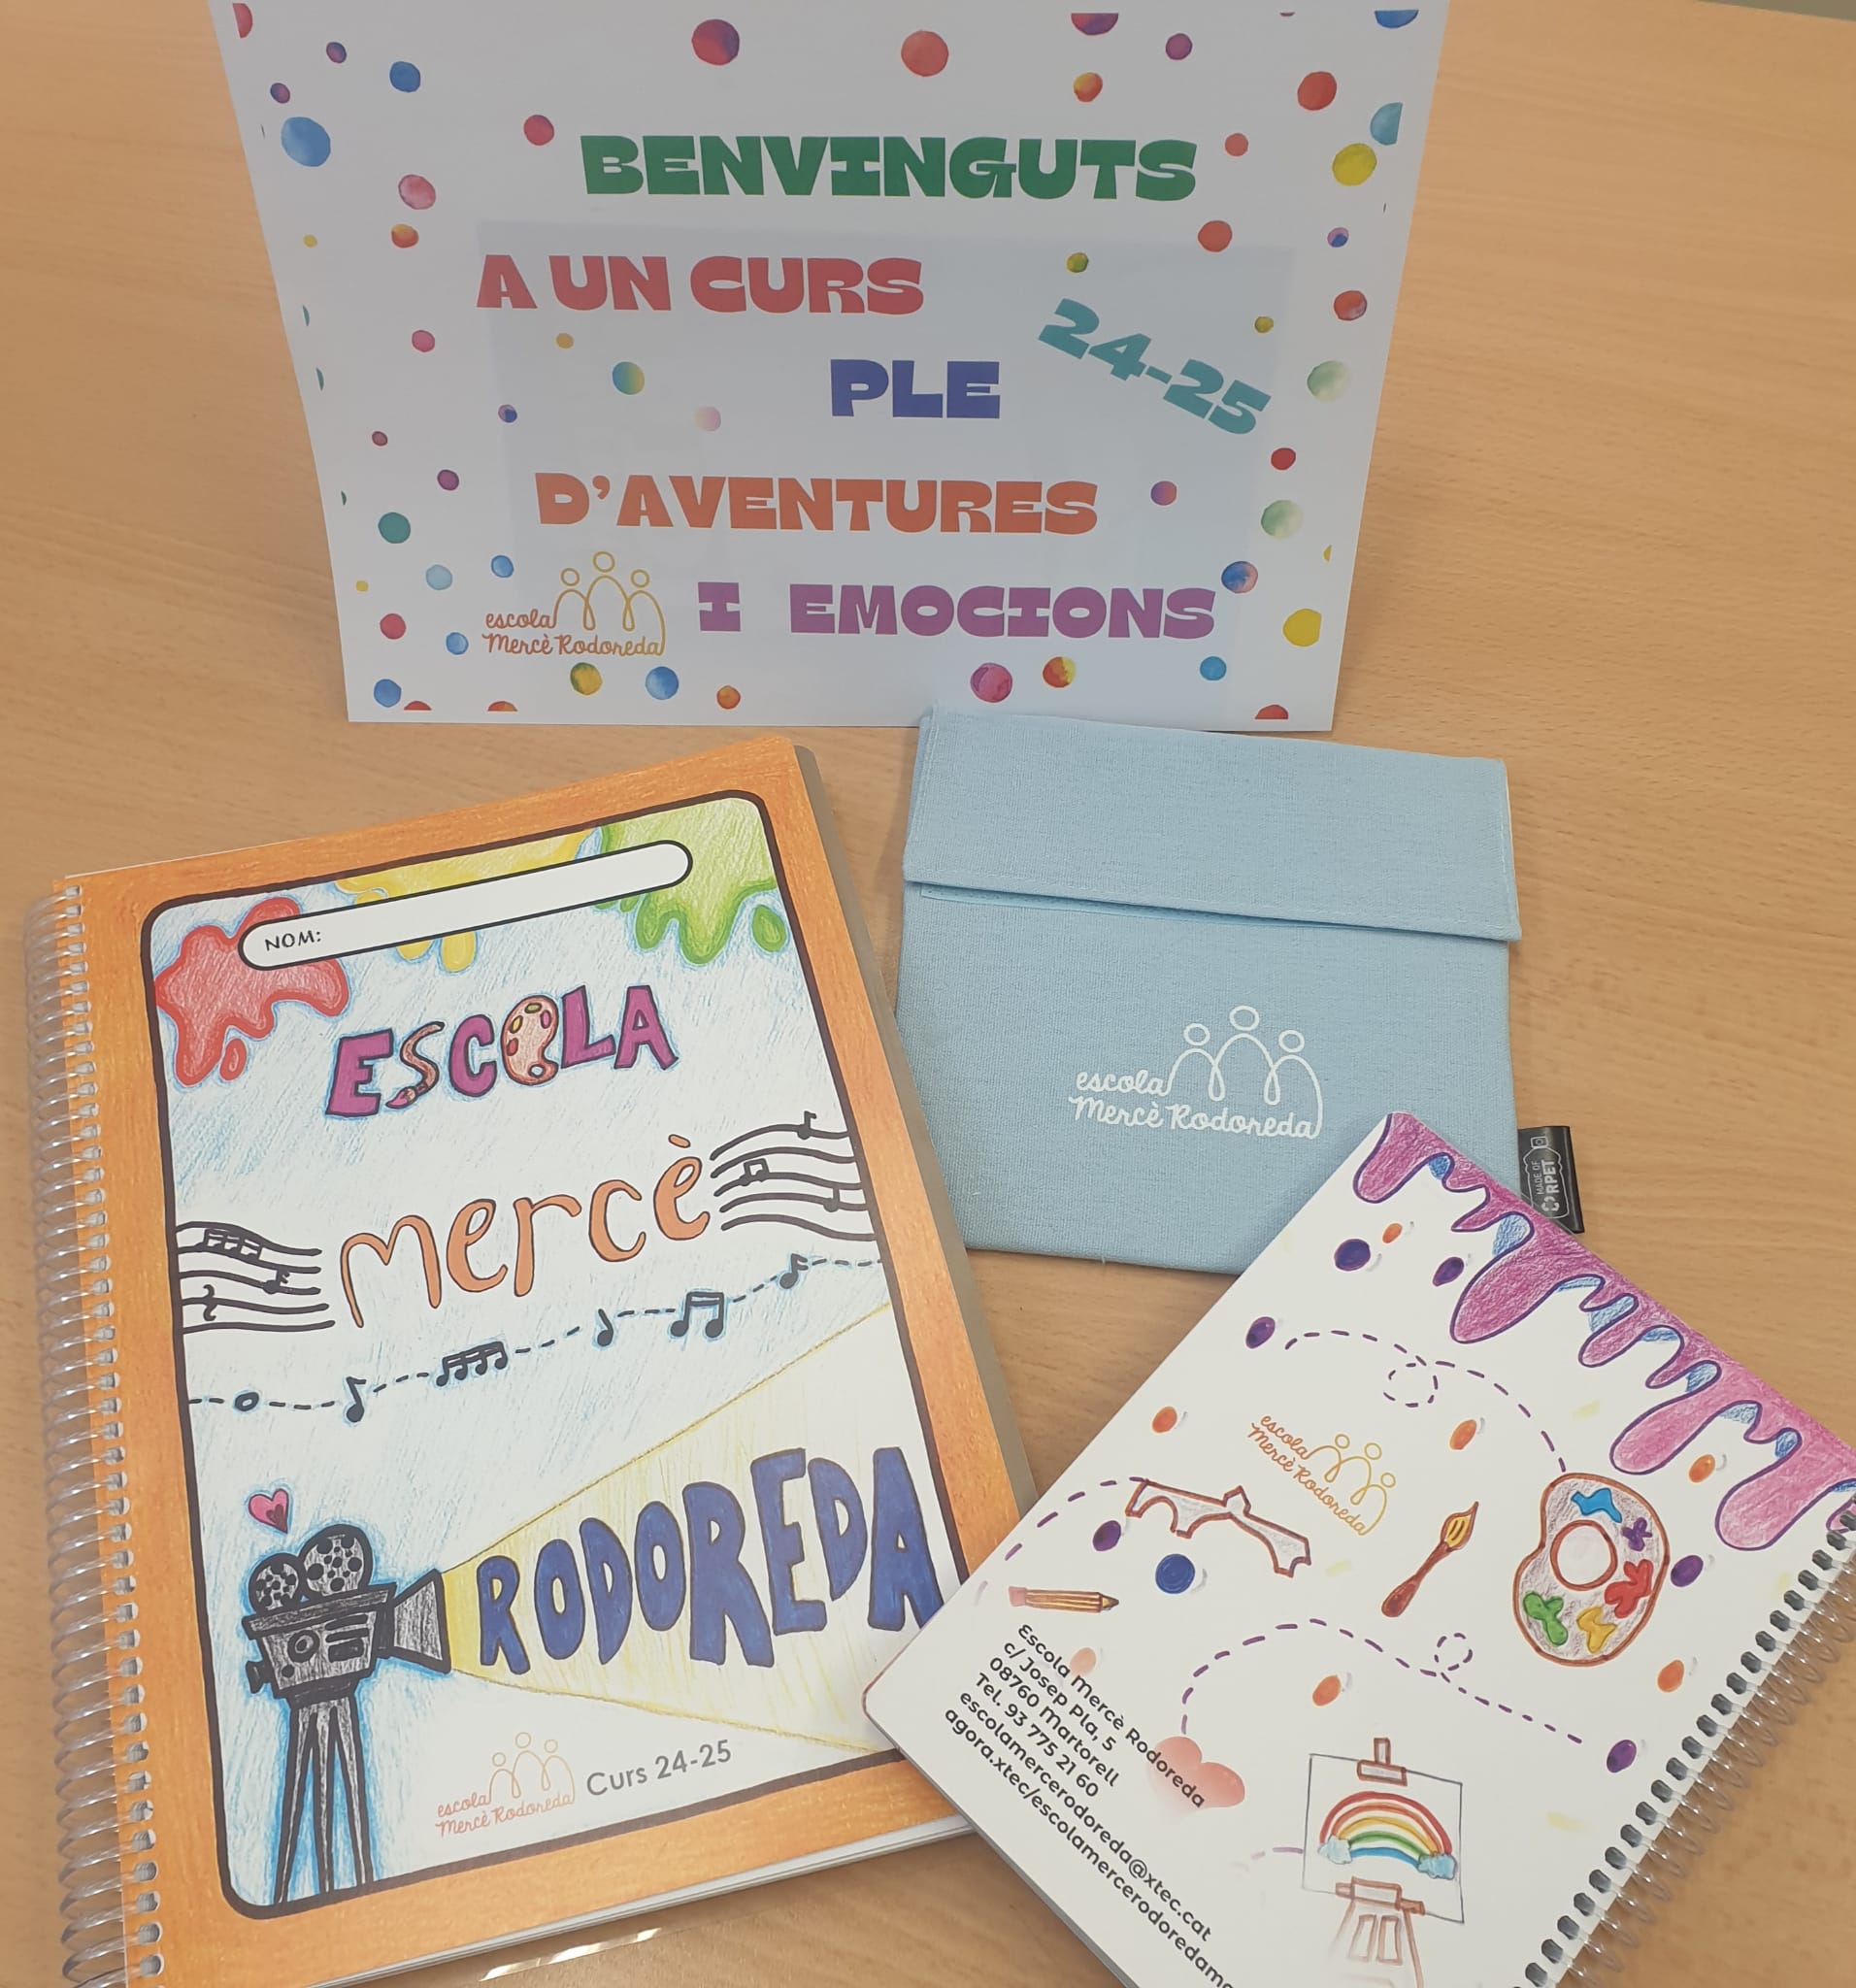 BENVINGUTS
A UN CURS
24-25
PLE
D'AVENTURES
I EMOCIONS
escola
Mercè Rodoreda
NOM:
ESCOLA
mercè
RODOREDA
escola
Mercè Rodoreda
Curs 24-25
escola
Mercè Rodoreda
MADE OF
RPET
escola
Mercè Rodoreda
Escola Mercè Rodoreda
c/ Josep Pla, 5
08760 Martorell
Tel. 93 775 21 60
escolamercerodoreda@xtec.cat
agora.xtec/escolamercerodoredama